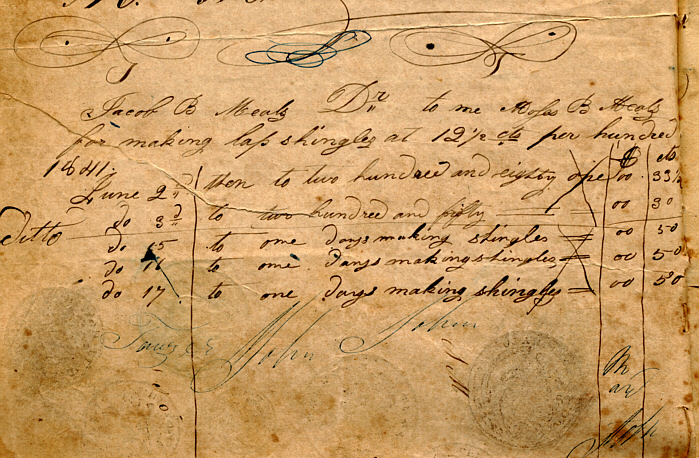 Jacob B Meals Dr to me Moses B Meals
for making lap shingles at 12 1/2 cts per hundred
$ cts
1841
June 2d then to two hundred and eighty one 00 33 1/2
do 3d to two hundred and fifty 00 30
Ditto do 15 to one days making shingles = 00 50
do 16 to one days making shingles = 00 50
do 17 to one days making shingles = 00 50
John John